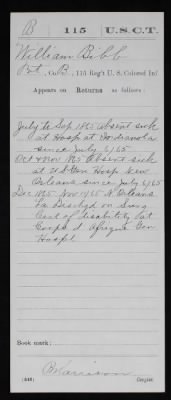 B 115 U.S.C.T.
William Bibb
Pvt, Co. B, 115 Reg't U. S. Colored Inf.
Appears on Returns as follows:
July to Sep 1865 Absent sick
at Hosp at
since July 6/65
Oct & Nov 1865 Absent sick
at U.S. Gen Hosp New
Orleans since July 6/65
Dec 1865 Nov 1/65 N. Orleans
La Dischgd on Surg
Cert of disability at
Corps d'Afrique Gen
Hospl
Book mark:
B Harrison
(546) Copyist.